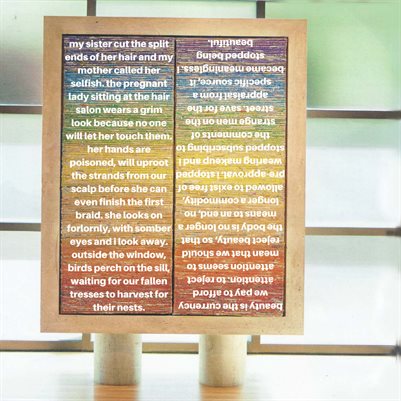 my sister cut the split
ends of her hair and my
mother called her
selfish. the pregnant
lady sitting at the hair
salon wears a grim
look because no one
will let her touch them.
her hands are
poisoned, will uproot
the strands from our
scalp before she can
even finish the first
braid. she looks on
forlornly, with somber
eyes and i look away.
outside the window,
birds perch on the sill,
waiting for our fallen
tresses to harvest for
their nests.
beauty is the currency
we pay to afford
attention. to reject
attention seems to
mean that we should
reject beauty, so that
the body is no longer a
means to an end, no
longer a commodity,
allowed to exist free of
pre-approval. i stopped
wearing makeup and i
stopped subscribing to
the comments of
strange men on the
street. save for the
appraisal from a
specific source, it
became meaningless. i
stopped being
beautiful.